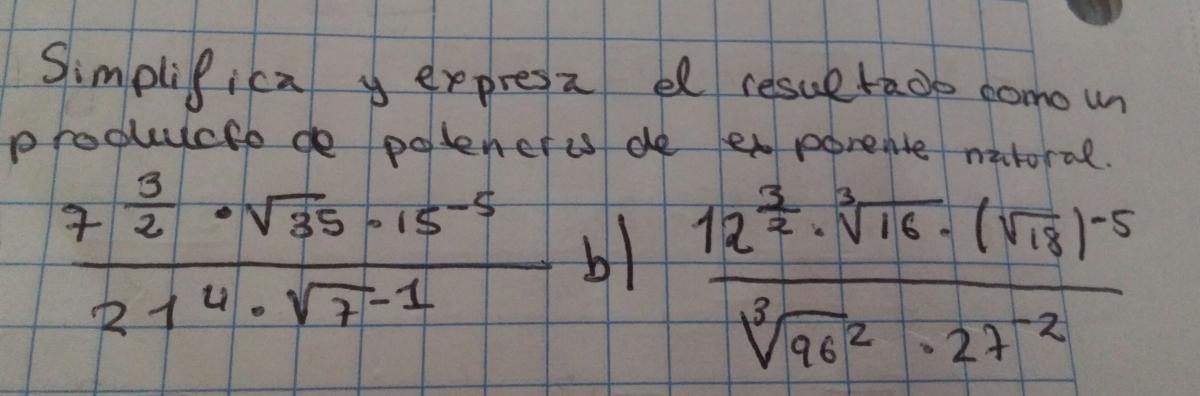 Simplifica y expresa el resultado como un
producto de potencias de exponente natural.
7^{3/2} · √35 · 15^{-5} / 21^4 · √7^{-1}
b) 12^{3/2} · ∛16 · (√18)^{-5} / ∛96^2 · 27^{-2}